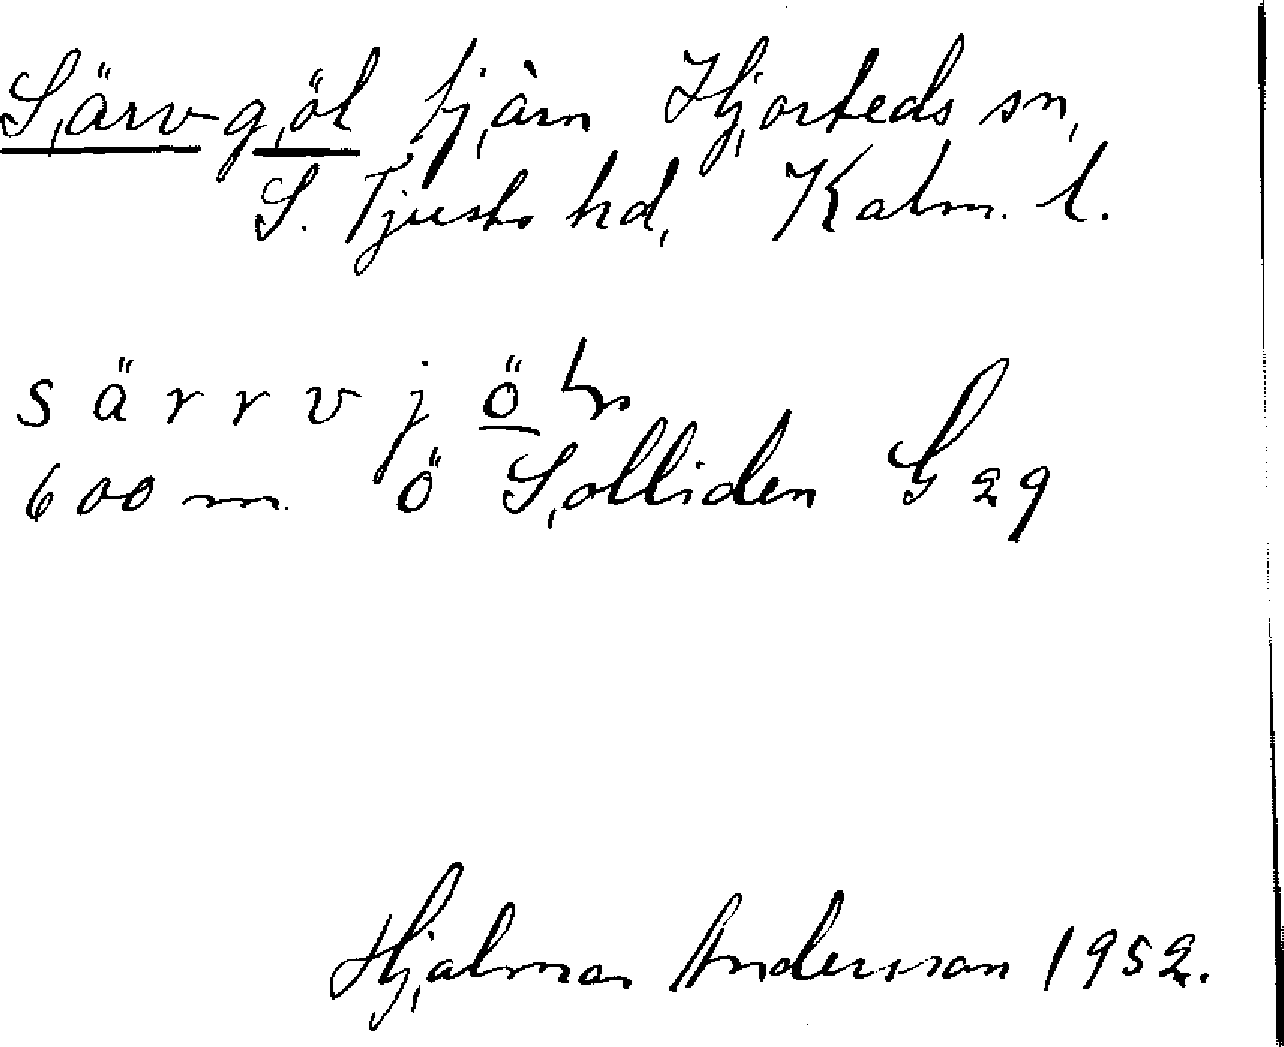 Särvgöl tjärn Hjorteds sn,
S. Tjusts hd, Kalm. l.
särrvjöln
600 m. ö Solliden G 29
Hjalmar Andersson 1952.